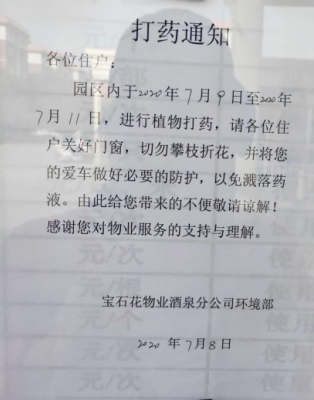 打药通知
各位住户：
园区内于2020年7月9日至2020年
7月11日，进行植物打药，请各位住
户关好门窗，切勿攀枝折花，并将您
的爱车做好必要的防护，以免溅落药
液。由此给您带来的不便敬请谅解！
感谢您对物业服务的支持与理解。
宝石花物业酒泉分公司环境部
2020年7月8日
元/次
元/根
元/次
元/个
元/次
使用
使用